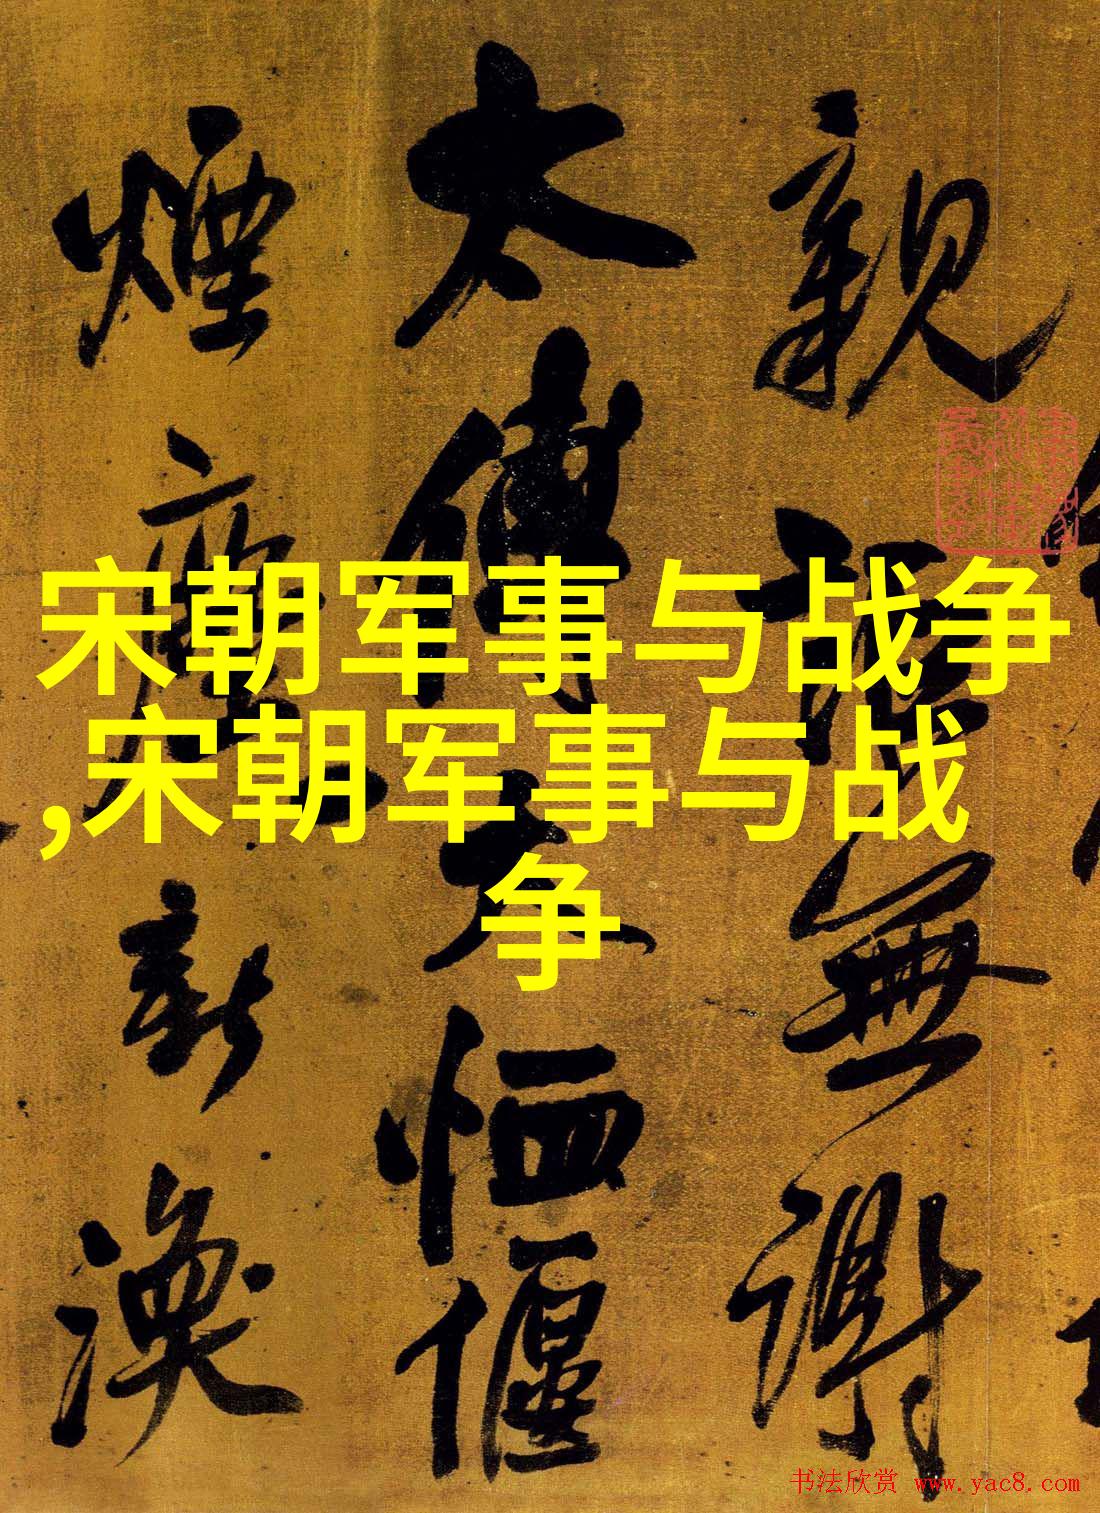 宋朝军事与战争
,宋朝军事与战
争
親無謝
太傅恤偃
煙塵新渙
书法欣赏 www.yac8.com